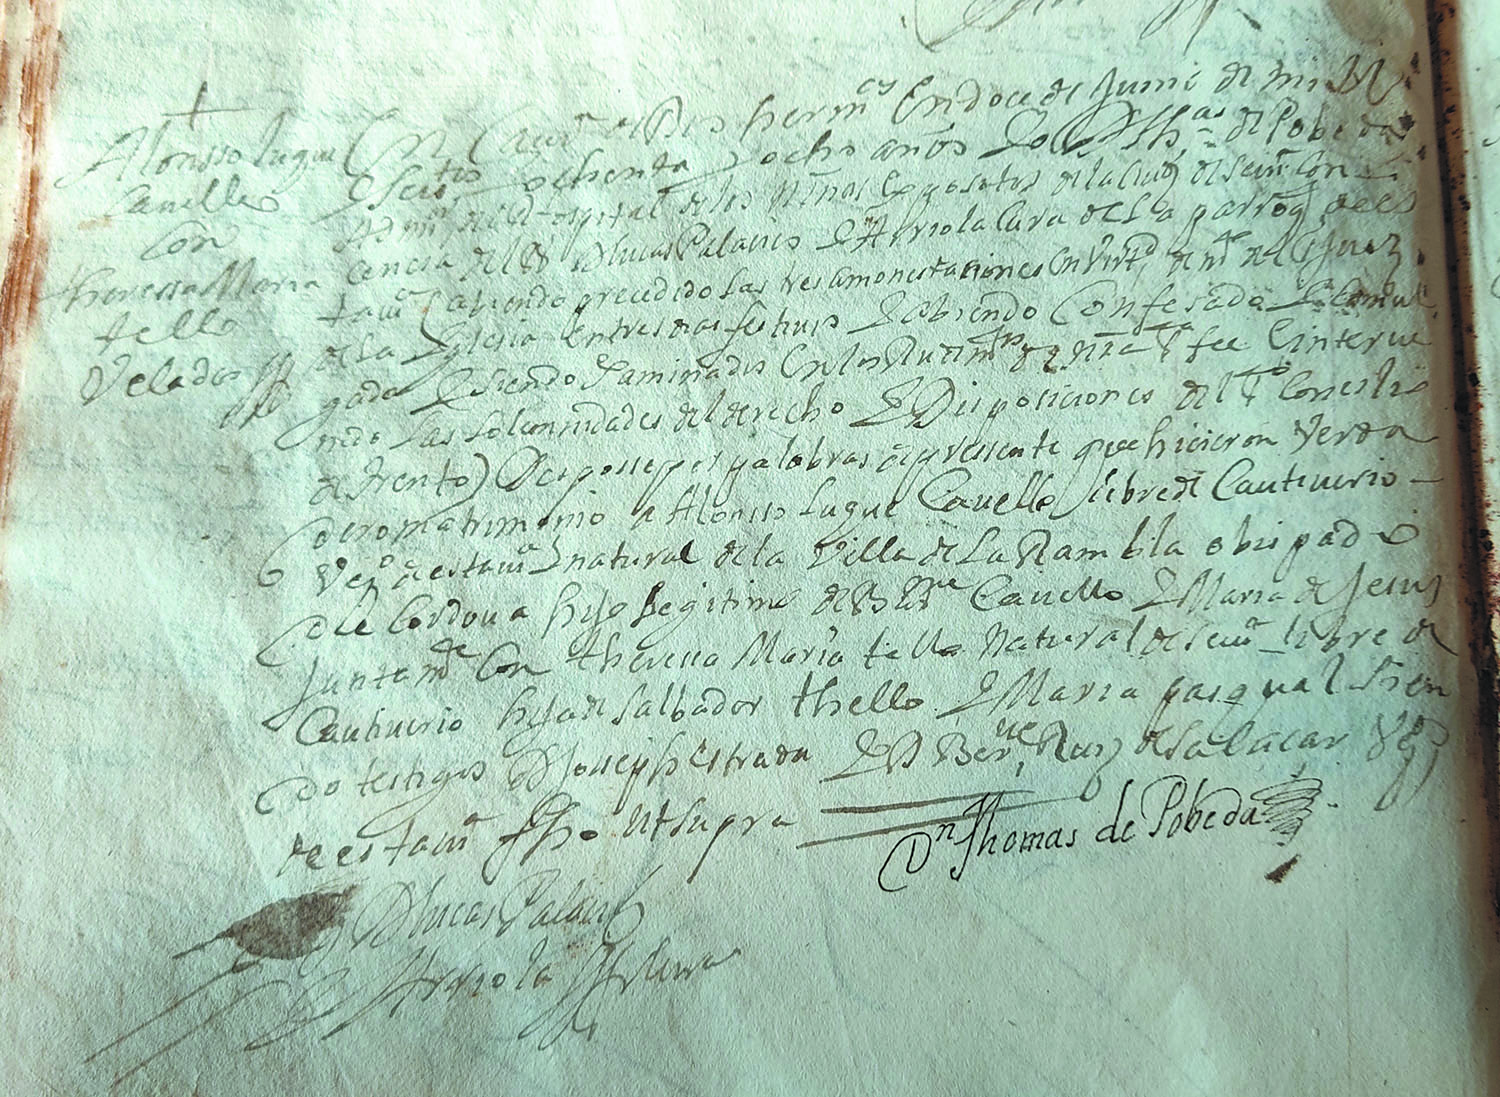 Alonsso luque
Cauello
con
theressa Maria
tello
Velados
En la Villa de Dos herm.as En doce de Junio de mil
y seis.tos y ochenta y ocho años Yo D.n Th.as de Pobeda
Adm.or del Ospital de los Niños Expositos de la ciu.d de seui.a con
licencia del S.r D. lucas Palacios y Arriola Cura de la parroq.l de es
ta uilla abiendo precedido las tres amonestaciones en Virt.d de m.to del S.r Juez
de la Yglesia en tres dias festiuos y abiendo Confesado y Comul
gado y siendo examinados en los Rudim.tos de n.ra S.ta fee e interue
niendo las solemnidades del derecho y Disposiciones del S.to Conçilio
de trento Despossé por palabras de pressente que hicieron Verda
dero matrimonio a Alonsso Luque Cauello libre de Cautiuerio
Vez.o de esta uilla y natural de la Villa de La Rambla obispado
de Cordoua hijo Legitimo de B.me Cauello y Maria de Jesus
Juntam.te Con theressa Maria tello Natural de seui.a libre de
Cautiuerio hija de salbador thello y Maria pasqual sien
do testigos D. Josseph estrada y D. Ber.me Ruiz de salaçar Vez.os
de esta uilla f.ho Ut supra
D.n Thomas de Pobeda
D lucas Palacios
y Arriola